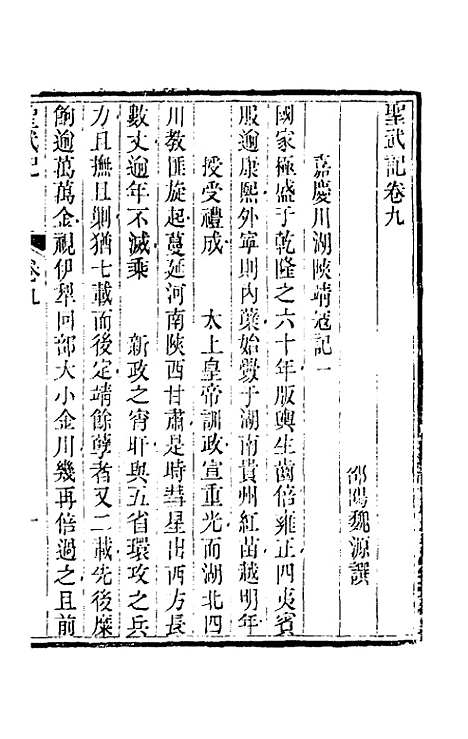 聖武記卷九
邵陽魏源譔
嘉慶川湖陝靖寇記一
國家極盛于乾隆之六十年版輿生齒倍雍正四夷賓
服逾康熙外寧則內蘖始釁于湖南貴州紅苗越明年
授受禮成 太上皇帝訓政宣重光而湖北四
川教匪旋起蔓延河南陝西甘肅是時彗星出西方長
數丈逾年不滅乘 新政之宵旰與五省環攻之兵
力且撫且剿猶七載而後定靖餘孽者又二載先後糜
餉逾萬萬金視伊犂回部大小金川幾再倍過之且前
聖武記
卷九
一